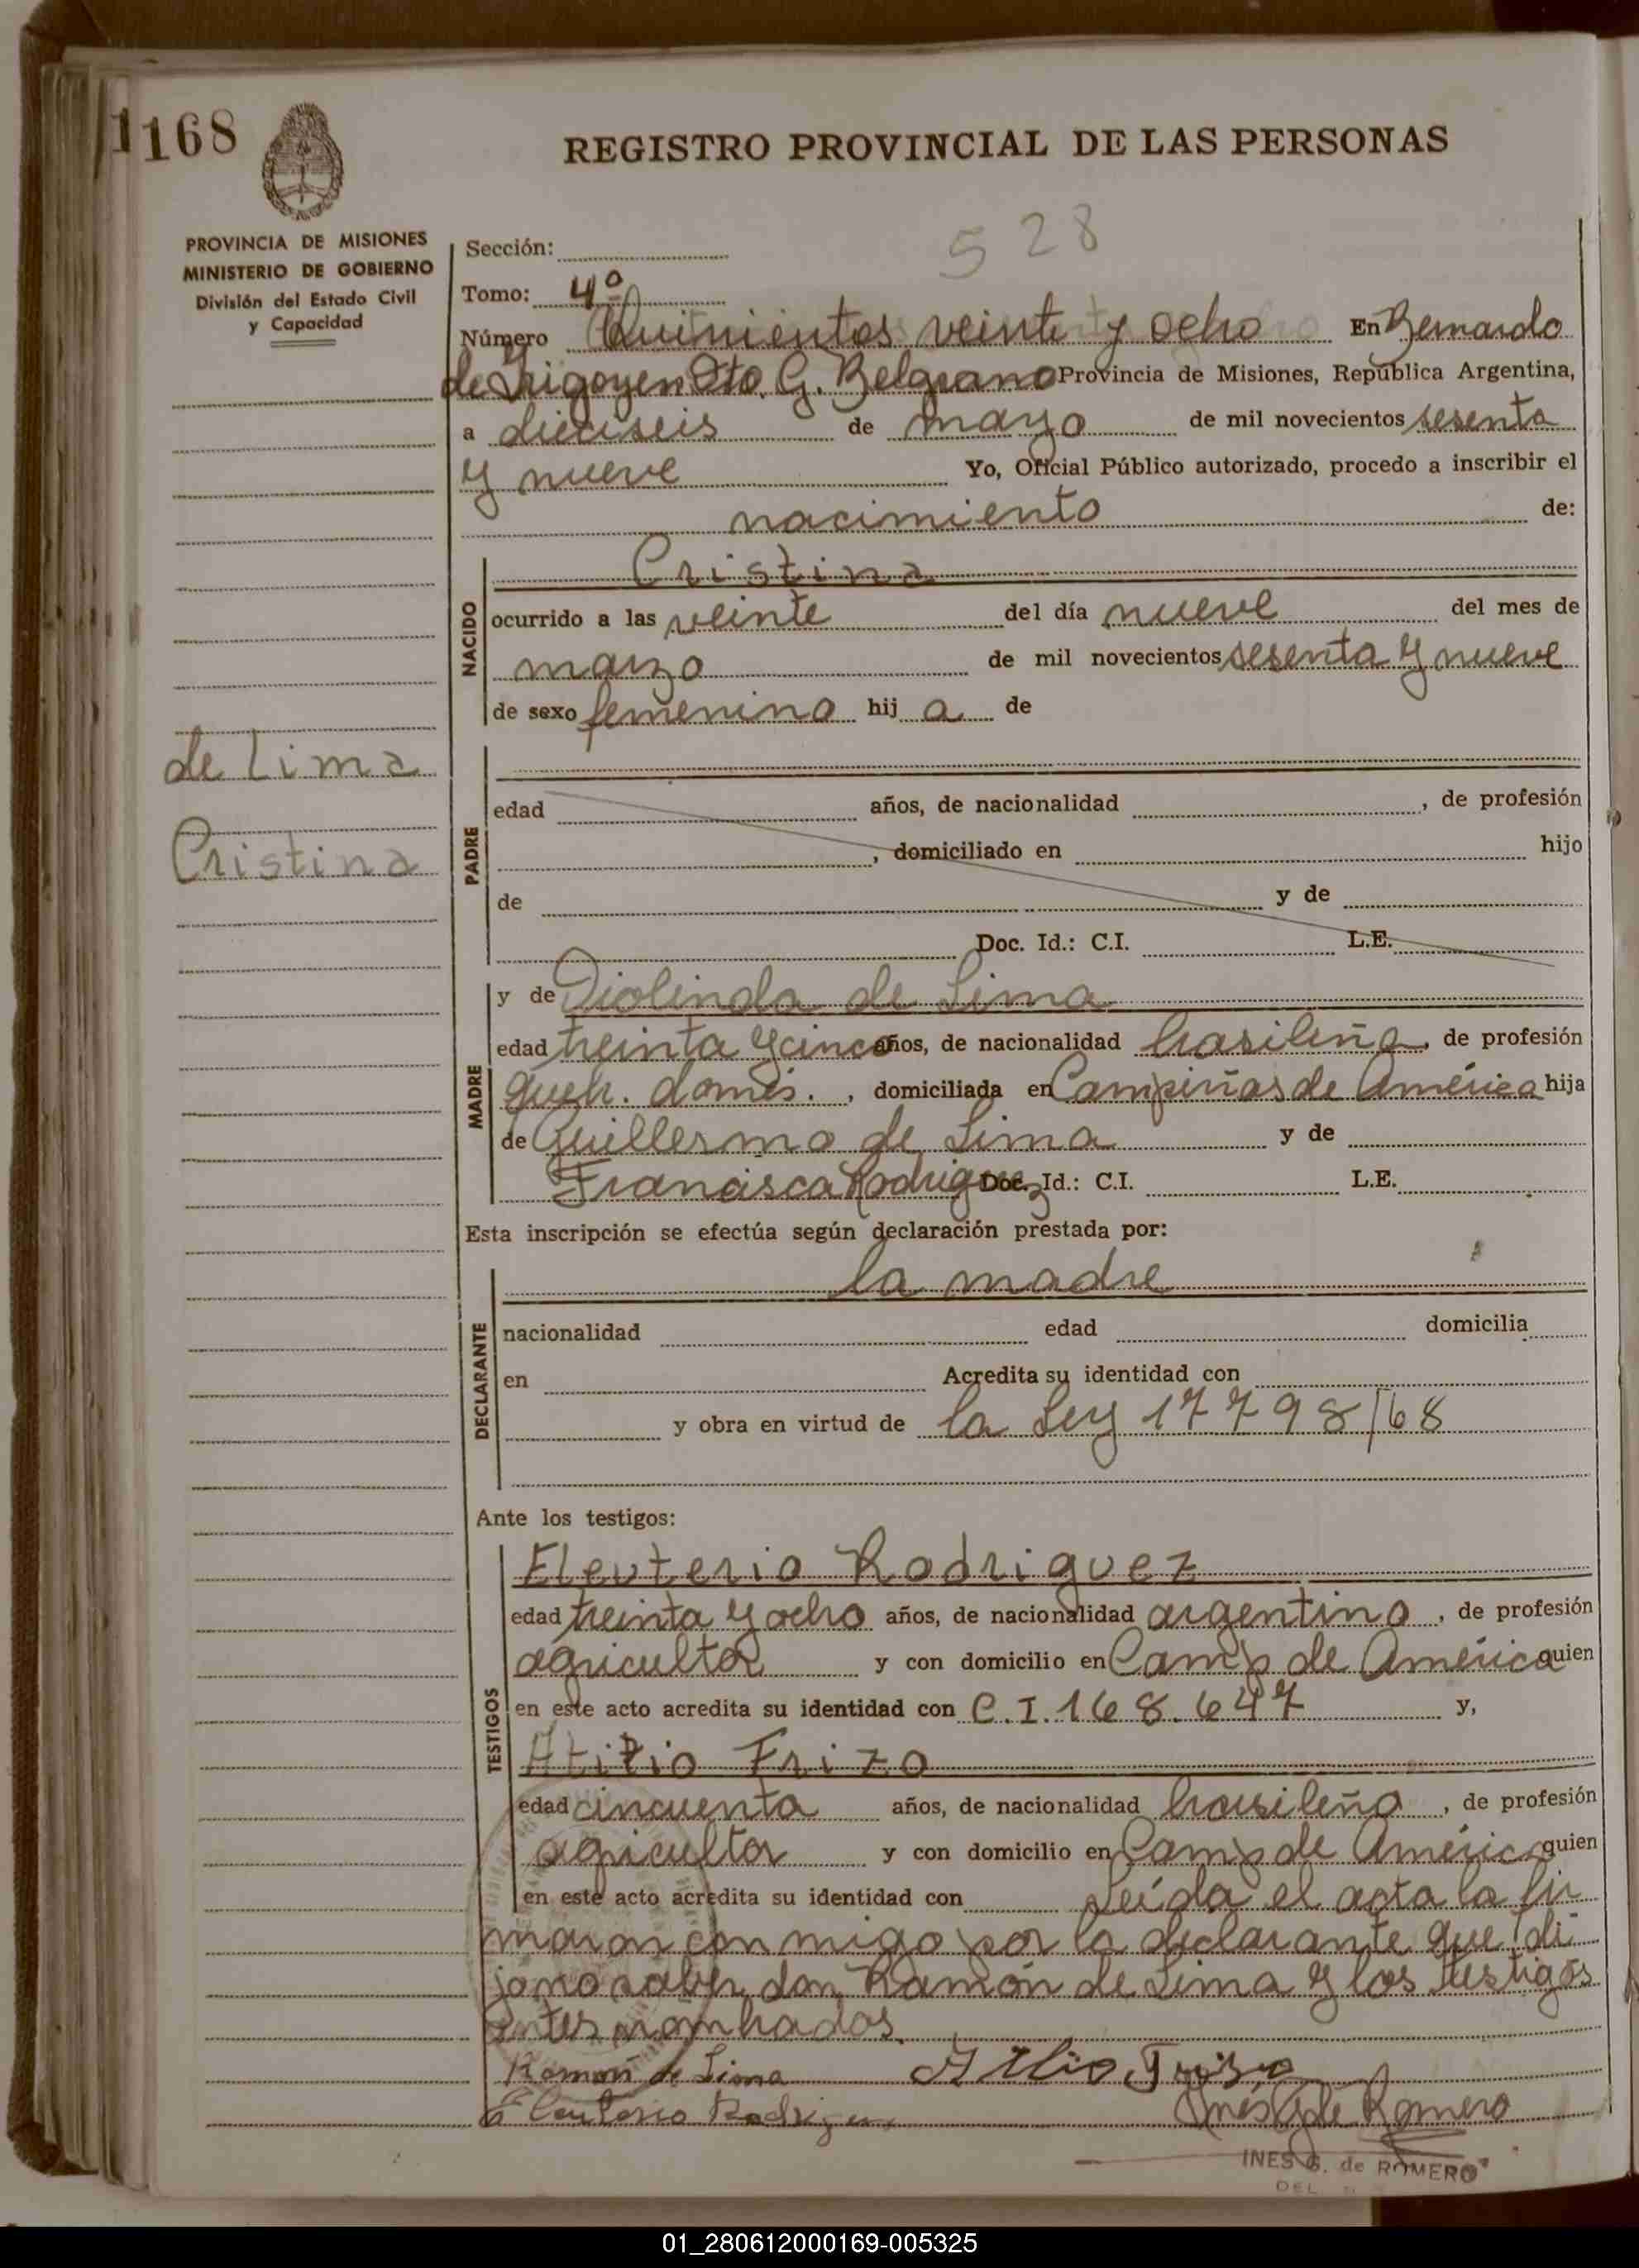 1168
REGISTRO PROVINCIAL DE LAS PERSONAS
PROVINCIA DE MISIONES
MINISTERIO DE GOBIERNO
División del Estado Civil
y Capacidad
528
Sección:
Tomo: 4º
Número Quinientos veinte y ocho En Bernardo
de Irigoyen Dto. G. Belgrano Provincia de Misiones, República Argentina,
a dieciseis de mayo de mil novecientos sesenta
y nueve Yo, Oficial Público autorizado, procedo a inscribir el
nacimiento de:
NACIDO
Cristina
ocurrido a las veinte del día nueve del mes de
marzo de mil novecientos sesenta y nueve
de sexo femenino hij a de
de Lima
Cristina
PADRE
edad años, de nacionalidad , de profesión
, domiciliado en hijo
de y de
Doc. Id.: C.I. L.E.
MADRE
y de Diolinda de Lima
edad treinta y cinco años, de nacionalidad brasileña, de profesión
queh. domés. , domiciliada en Campiñas de América hija
de Guillermo de Lima y de
Francisca Rodriguez Doc. Id.: C.I. L.E.
Esta inscripción se efectúa según declaración prestada por:
DECLARANTE
la madre
nacionalidad edad domicilia
en Acredita su identidad con
y obra en virtud de la Ley 17798/68
Ante los testigos:
TESTIGOS
Eleuterio Rodriguez
edad treinta y ocho años, de nacionalidad argentino, de profesión
agricultor y con domicilio en Camp de América quien
en este acto acredita su identidad con C.I. 168.647 y,
Atilio Frizo
edad cincuenta años, de nacionalidad brasileño, de profesión
agricultor y con domicilio en Camp de América quien
en este acto acredita su identidad con Leída el acta la fir
maron conmigo por la declarante que di-
jo no saber don Ramón de Lima y los testigos
antes nombrados.
Ramon de Lima Atilio Frizo
Eleuterio Rodriguez Ines G de Romero
INES G. de ROMERO
DEL
01_280612000169-005325